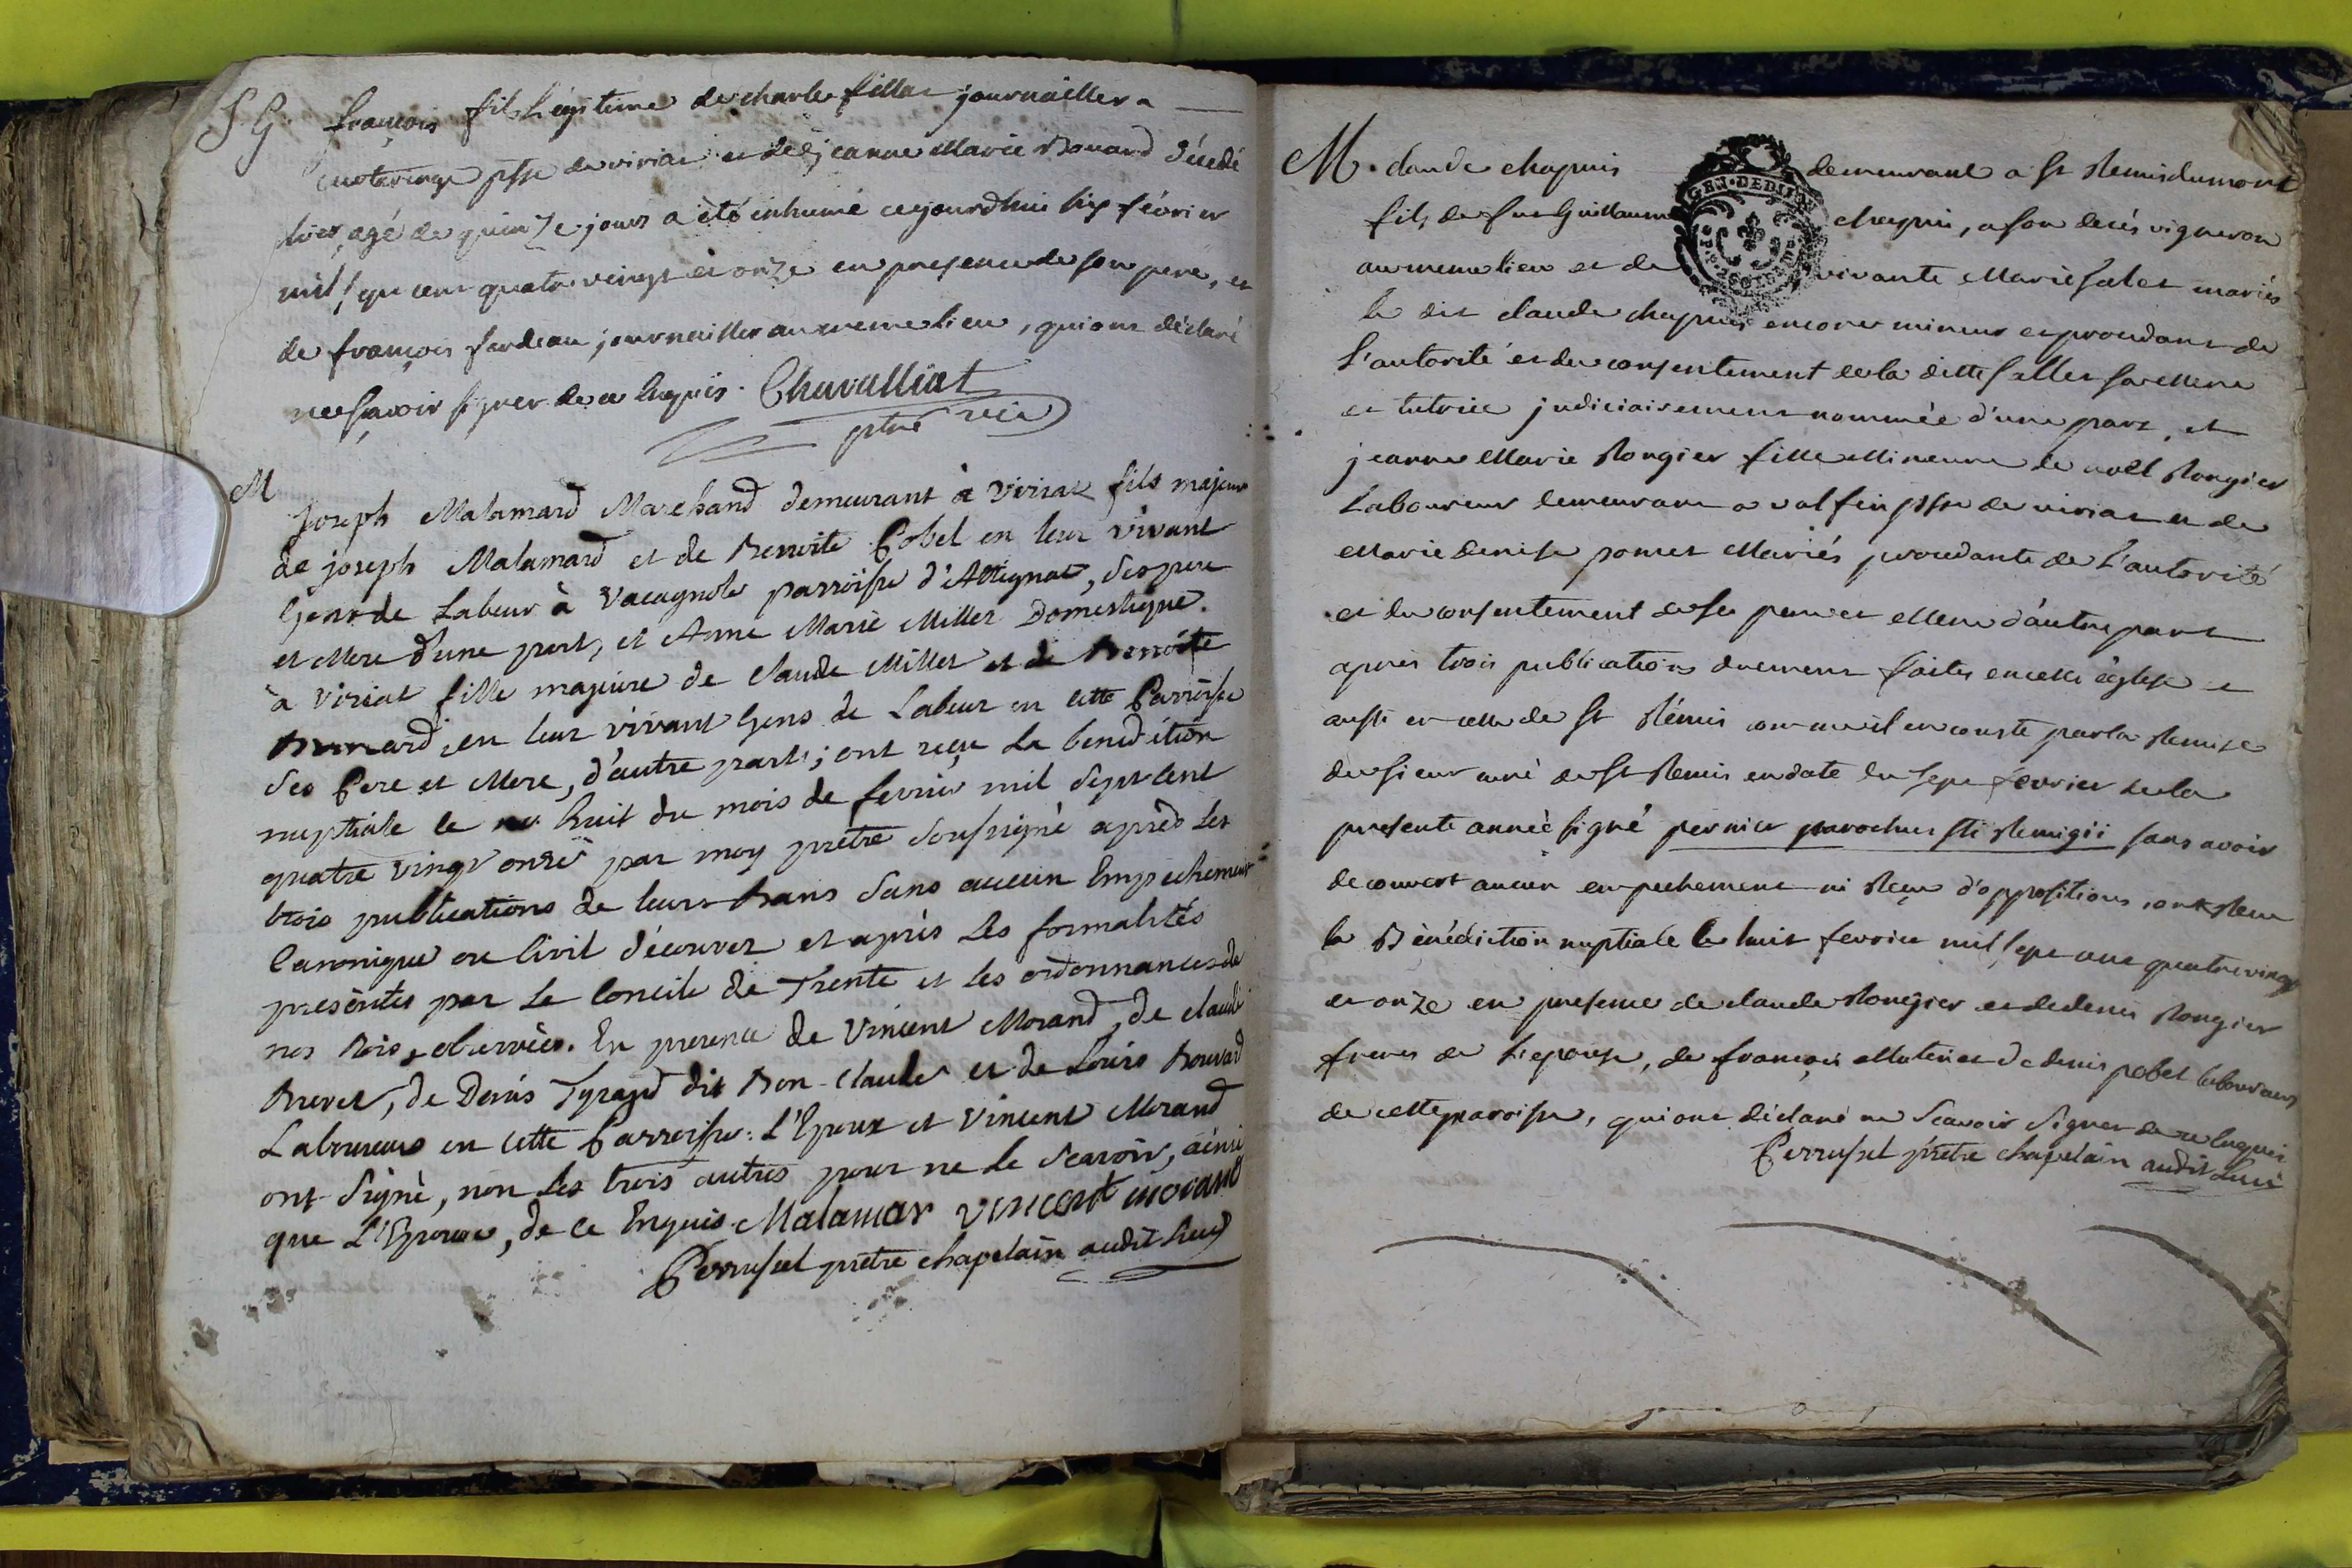 S. G. françois fils Légitime de charle fillar journaillier a
psse de viriat et de jeanne Marie Bouard décédé
hier, agé de quinze jours a été inhumé cejourdhui six février
mil sept cent quatre vingt et onze en presence de son pere, et
de françois fardeau journaillier au meme lieu, qui ont déclaré
ne sçavoir signer de ce Enquis. Chavalliat
ptre vic
M
Joseph Malamard Marchand demeurant à Viriat fils majeur
de joseph Malamard et de Benoite Pobel en leur vivant
Gens de Labeur à Vacagnole parroisse d'Attignat, Ses pere
et Mere d'une part, et Anne Marie Millet Domestique
à Viriat fille majeure de Claude Millet et de Benoite
en leur vivant Gens de Labeur en cette Parroisse
Ses Pere et Mere, d'autre part; ont reçu la bénédiction
nuptiale le huit du mois de fevrier mil Sept cent
quatre vingt onze par moy prêtre Soussigné après les
trois publications de leurs Bans Sans aucun Empechement
Canonique ou Civil découvert et après les formalités
presentes par le Concile de Trente et les ordonnances de
nos Rois, observées. En presence de Vincent Morand, de claude
Brevet, de Denis Tyrand dit Bon-Claude et de Louis Bouvard
Laboureurs en cette Parroisse: L'Epoux et Vincent Morand
ont Signé, non les trois autres pour ne le Scavoir, ainsi
que L'Epouse, de ce Enquis. Malamar vincent morand
Perrussel prêtre chapelain audit Lieu
M. claude chapuis demeurant a St Remis du mont
fils de feu Guillaume chapuis, a son decés vigneron
GEN. DE DIJON
au meme lieu et de vivante Marie fales mariés
le dit claude chapuis encore mineur et procedant de
l'autorité et du consentement de la ditte falles sa Mere
et tutrice judiciairement nommée d'une part, et
jeanne Marie Rongier fille Mineure de noël Rongier
Laboureur demeurant a valfin psse de viriat et de
Marie denise ponet Mariés procedante de l'autorité
et du consentement de ses pere et Mere d'autre part
apres trois publications duement faites en cette église et
aussi en celle de St Rémis comme il en conste par la Remise
du sieur curé de St Remis en date du sept fevrier de la
presente année signé pernier parochus sti Remigii sans avoir
decouvert aucun empechement ni Reçu d'oppositions ont Recu
la Bénédiction nuptiale le huit fevrier mil sept cent quatre vingt
et onze en presence de claude Rongier et de denis Rongier
freres de L'epouse, de françois Materi et de denis pobel laboureurs
de cette paroisse, qui ont déclaré ne Scavoir Signer de ce Enquis
Perrussel prêtre chapelain audit Lieu